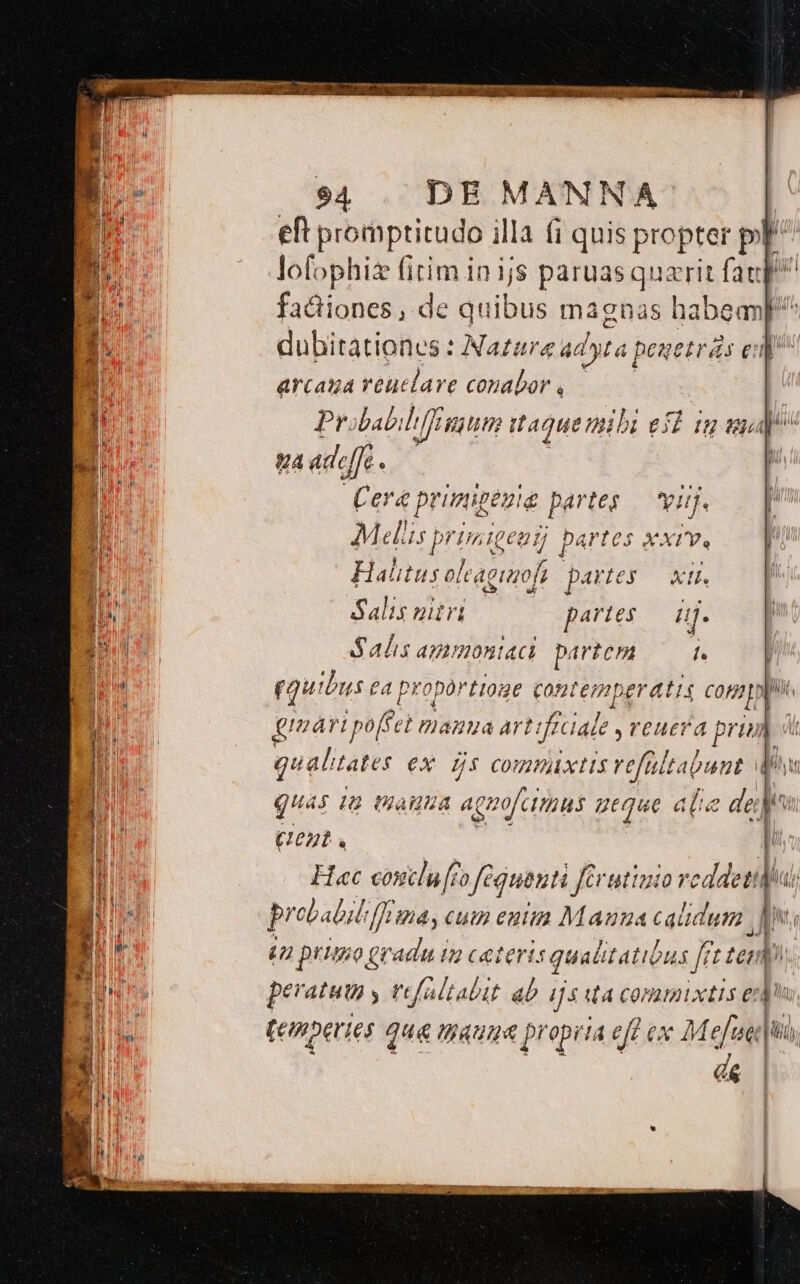 94 DE MANNA
eſt promptitudo illa ſi quis propter
loſophiæ ſitim in ijs paruas quærit
factiones, de quibus magnas
dubitationes: Naturæ adyta penetrās
arcana reuelare conabor,
Probabiliſſimum itaque mihi eſt in
na adeſſe.
Ceræ primigeniæ partes viij.
Mellis primigenij partes xxiv.
Halitus oleaginoſi partes xij.
Salis nitri partes iij.
Salis ammoniaci partem i.
equibus ea proportione contemperatis
ginari poſſet manna artificiale, reuera
qualitates ex ijs commixtis reſultabunt
quas in manna agnoſcimus neque aliæ
cient,
Hæc concluſio ſequenti ſcrutinio
probabiliſſima, cum enim Manna calidum
in primo gradu in cæteris qualitatibus ſit
peratum, reſultabit ab ijs ita commixtis
temperies quæ mannæ propria eſt ex
de